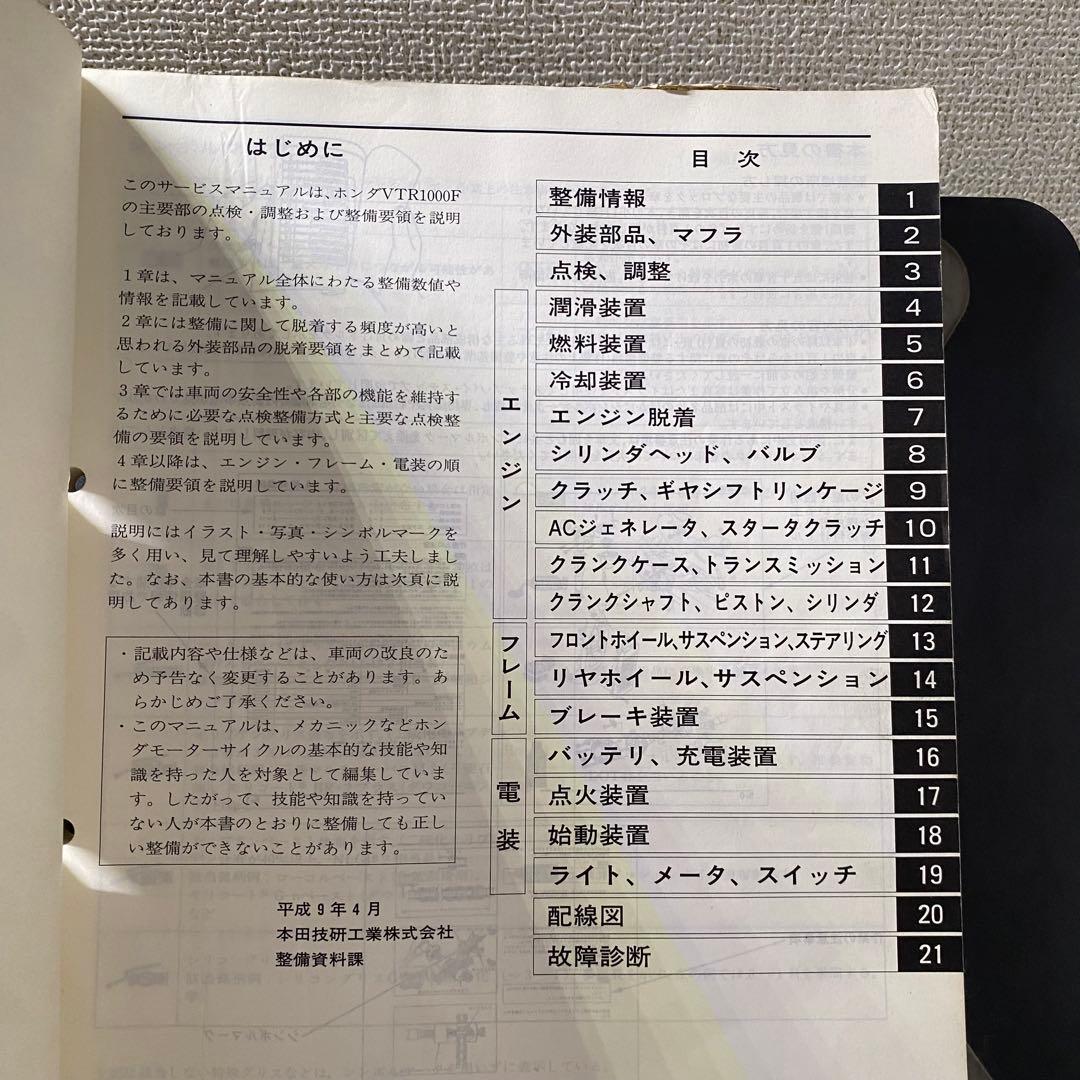 はじめに
このサービスマニュアルは、ホンダVTR1000F
の主要部の点検・調整および整備要領を説明
しております。
1章は、マニュアル全体にわたる整備数値や
情報を記載しています。
2章には整備に関して脱着する頻度が高いと
思われる外装部品の脱着要領をまとめて記載
しています。
3章では車両の安全性や各部の機能を維持す
るために必要な点検整備方式と主要な点検整
備の要領を説明しています。
4章以降は、エンジン・フレーム・電装の順
に整備要領を説明しています。
説明にはイラスト・写真・シンボルマークを
多く用い、見て理解しやすいよう工夫しまし
た。なお、本書の基本的な使い方は次頁に説
明してあります。
・記載内容や仕様などは、車両の改良のた
め予告なく変更することがあります。あ
らかじめご了承ください。
・このマニュアルは、メカニックなどホン
ダモーターサイクルの基本的な技能や知
識を持った人を対象として編集していま
す。したがって、技能や知識を持ってい
ない人が本書のとおりに整備しても正し
い整備ができないことがあります。
平成9年4月
本田技研工業株式会社
整備資料課
目 次
整備情報 1
外装部品、マフラ 2
点検、調整 3
エンジン
潤滑装置 4
燃料装置 5
冷却装置 6
エンジン脱着 7
シリンダヘッド、バルブ 8
クラッチ、ギヤシフトリンケージ 9
ACジェネレータ、スタータクラッチ 10
クランクケース、トランスミッション 11
クランクシャフト、ピストン、シリンダ 12
フレーム
フロントホイール、サスペンション、ステアリング 13
リヤホイール、サスペンション 14
ブレーキ装置 15
電装
バッテリ、充電装置 16
点火装置 17
始動装置 18
ライト、メータ、スイッチ 19
配線図 20
故障診断 21